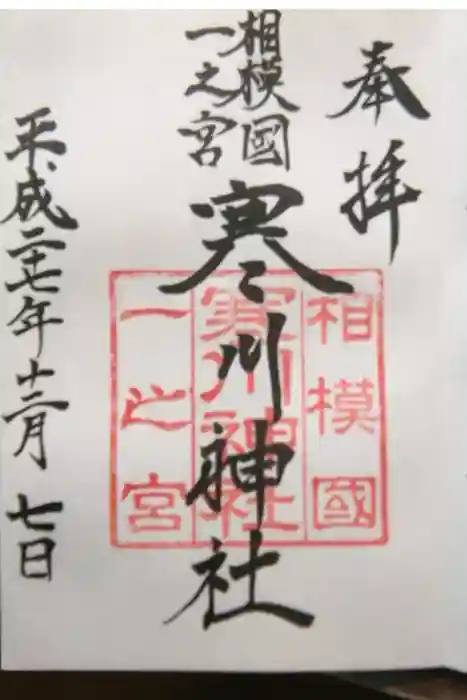 奉拝
相模國
一之宮
寒川神社
平成二十七年十二月七日
相模國
寒川神社
一之宮